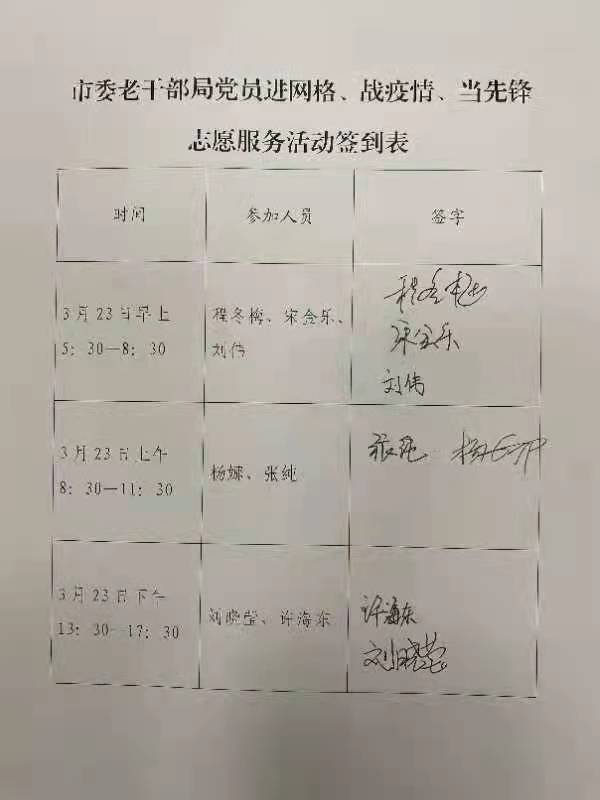 市委老干部局党员进网格、战疫情、当先锋
志愿服务活动签到表
时间
参加人员
签字
3月23日早上
5：30—8：30
程冬梅、宋金乐、
刘伟
程冬梅
宋金乐
刘伟
3月23日上午
8：30—11：30
杨嫌、张纯
张纯
3月23日下午
13：30—17：30
刘晓莹、许海东
许海东
刘晓莹